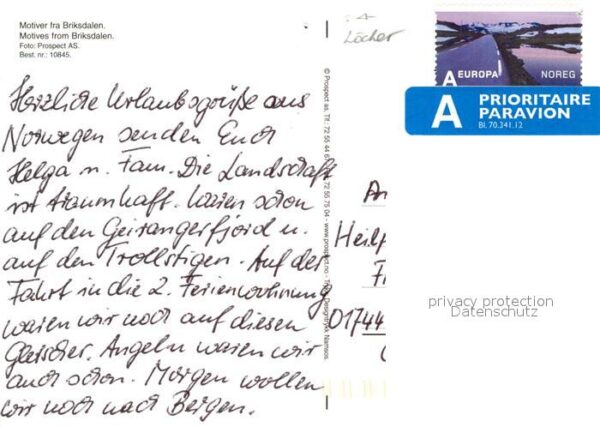 Motiver fra Briksdalen.
Motives from Briksdalen.
Foto: Prospect AS.
Best. nr.: 10845.
Löcher
A EUROPA NOREG
A PRIORITAIRE
PAR AVION
Bl. 70.341.12
Herzliche Urlaubsgrüße aus
Norwegen senden Euch
Helga u. Fam. Die Landschaft
ist traumhaft. Waren schon
auf den Geirangerfjord u.
auf den Trollstigen. Auf der
Fahrt in die 2. Ferienwohnung
waren wir noch auf diesen
Gletscher. Angeln waren wir
auch schon. Morgen wollen
wir noch nach Bergen.
© Prospect as, Tlf.: 72 55 44 72 55 75 04 - www.prospect.no - Namsos.
An
Heilp
01744
privacy protection
Datenschutz